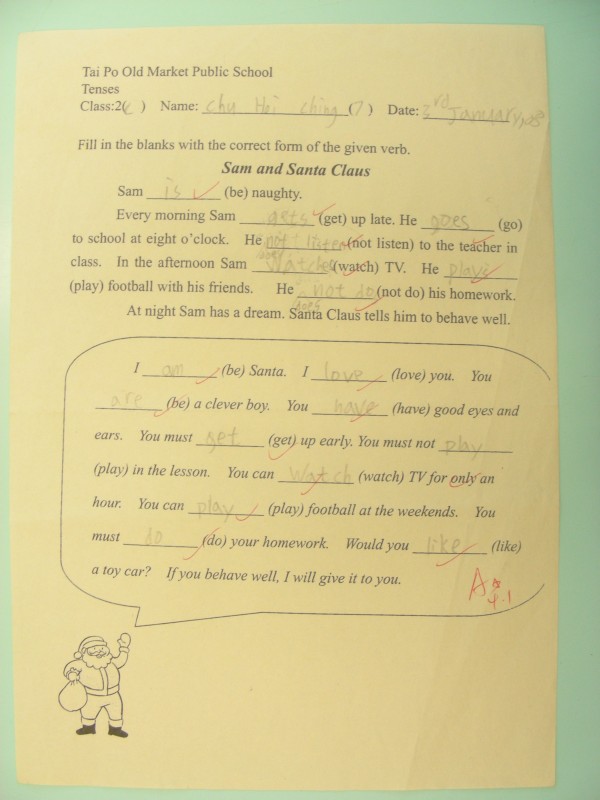 Tai Po Old Market Public School
Tenses
Class:2(c) Name: Chu Hei ching (7) Date: 3rd January
Fill in the blanks with the correct form of the given verb.
Sam and Santa Claus
Sam is (be) naughty.
Every morning Sam gets (get) up late. He goes (go)
to school at eight o'clock. He not listen (not listen) to the teacher in
does
class. In the afternoon Sam watches (watch) TV. He plays
(play) football with his friends. He not do (not do) his homework.
does
At night Sam has a dream. Santa Claus tells him to behave well.
I am (be) Santa. I love (love) you. You
are (be) a clever boy. You have (have) good eyes and
ears. You must get (get) up early. You must not play
(play) in the lesson. You can watch (watch) TV for only an
hour. You can play (play) football at the weekends. You
must do (do) your homework. Would you like (like)
a toy car? If you behave well, I will give it to you.
A
4.1